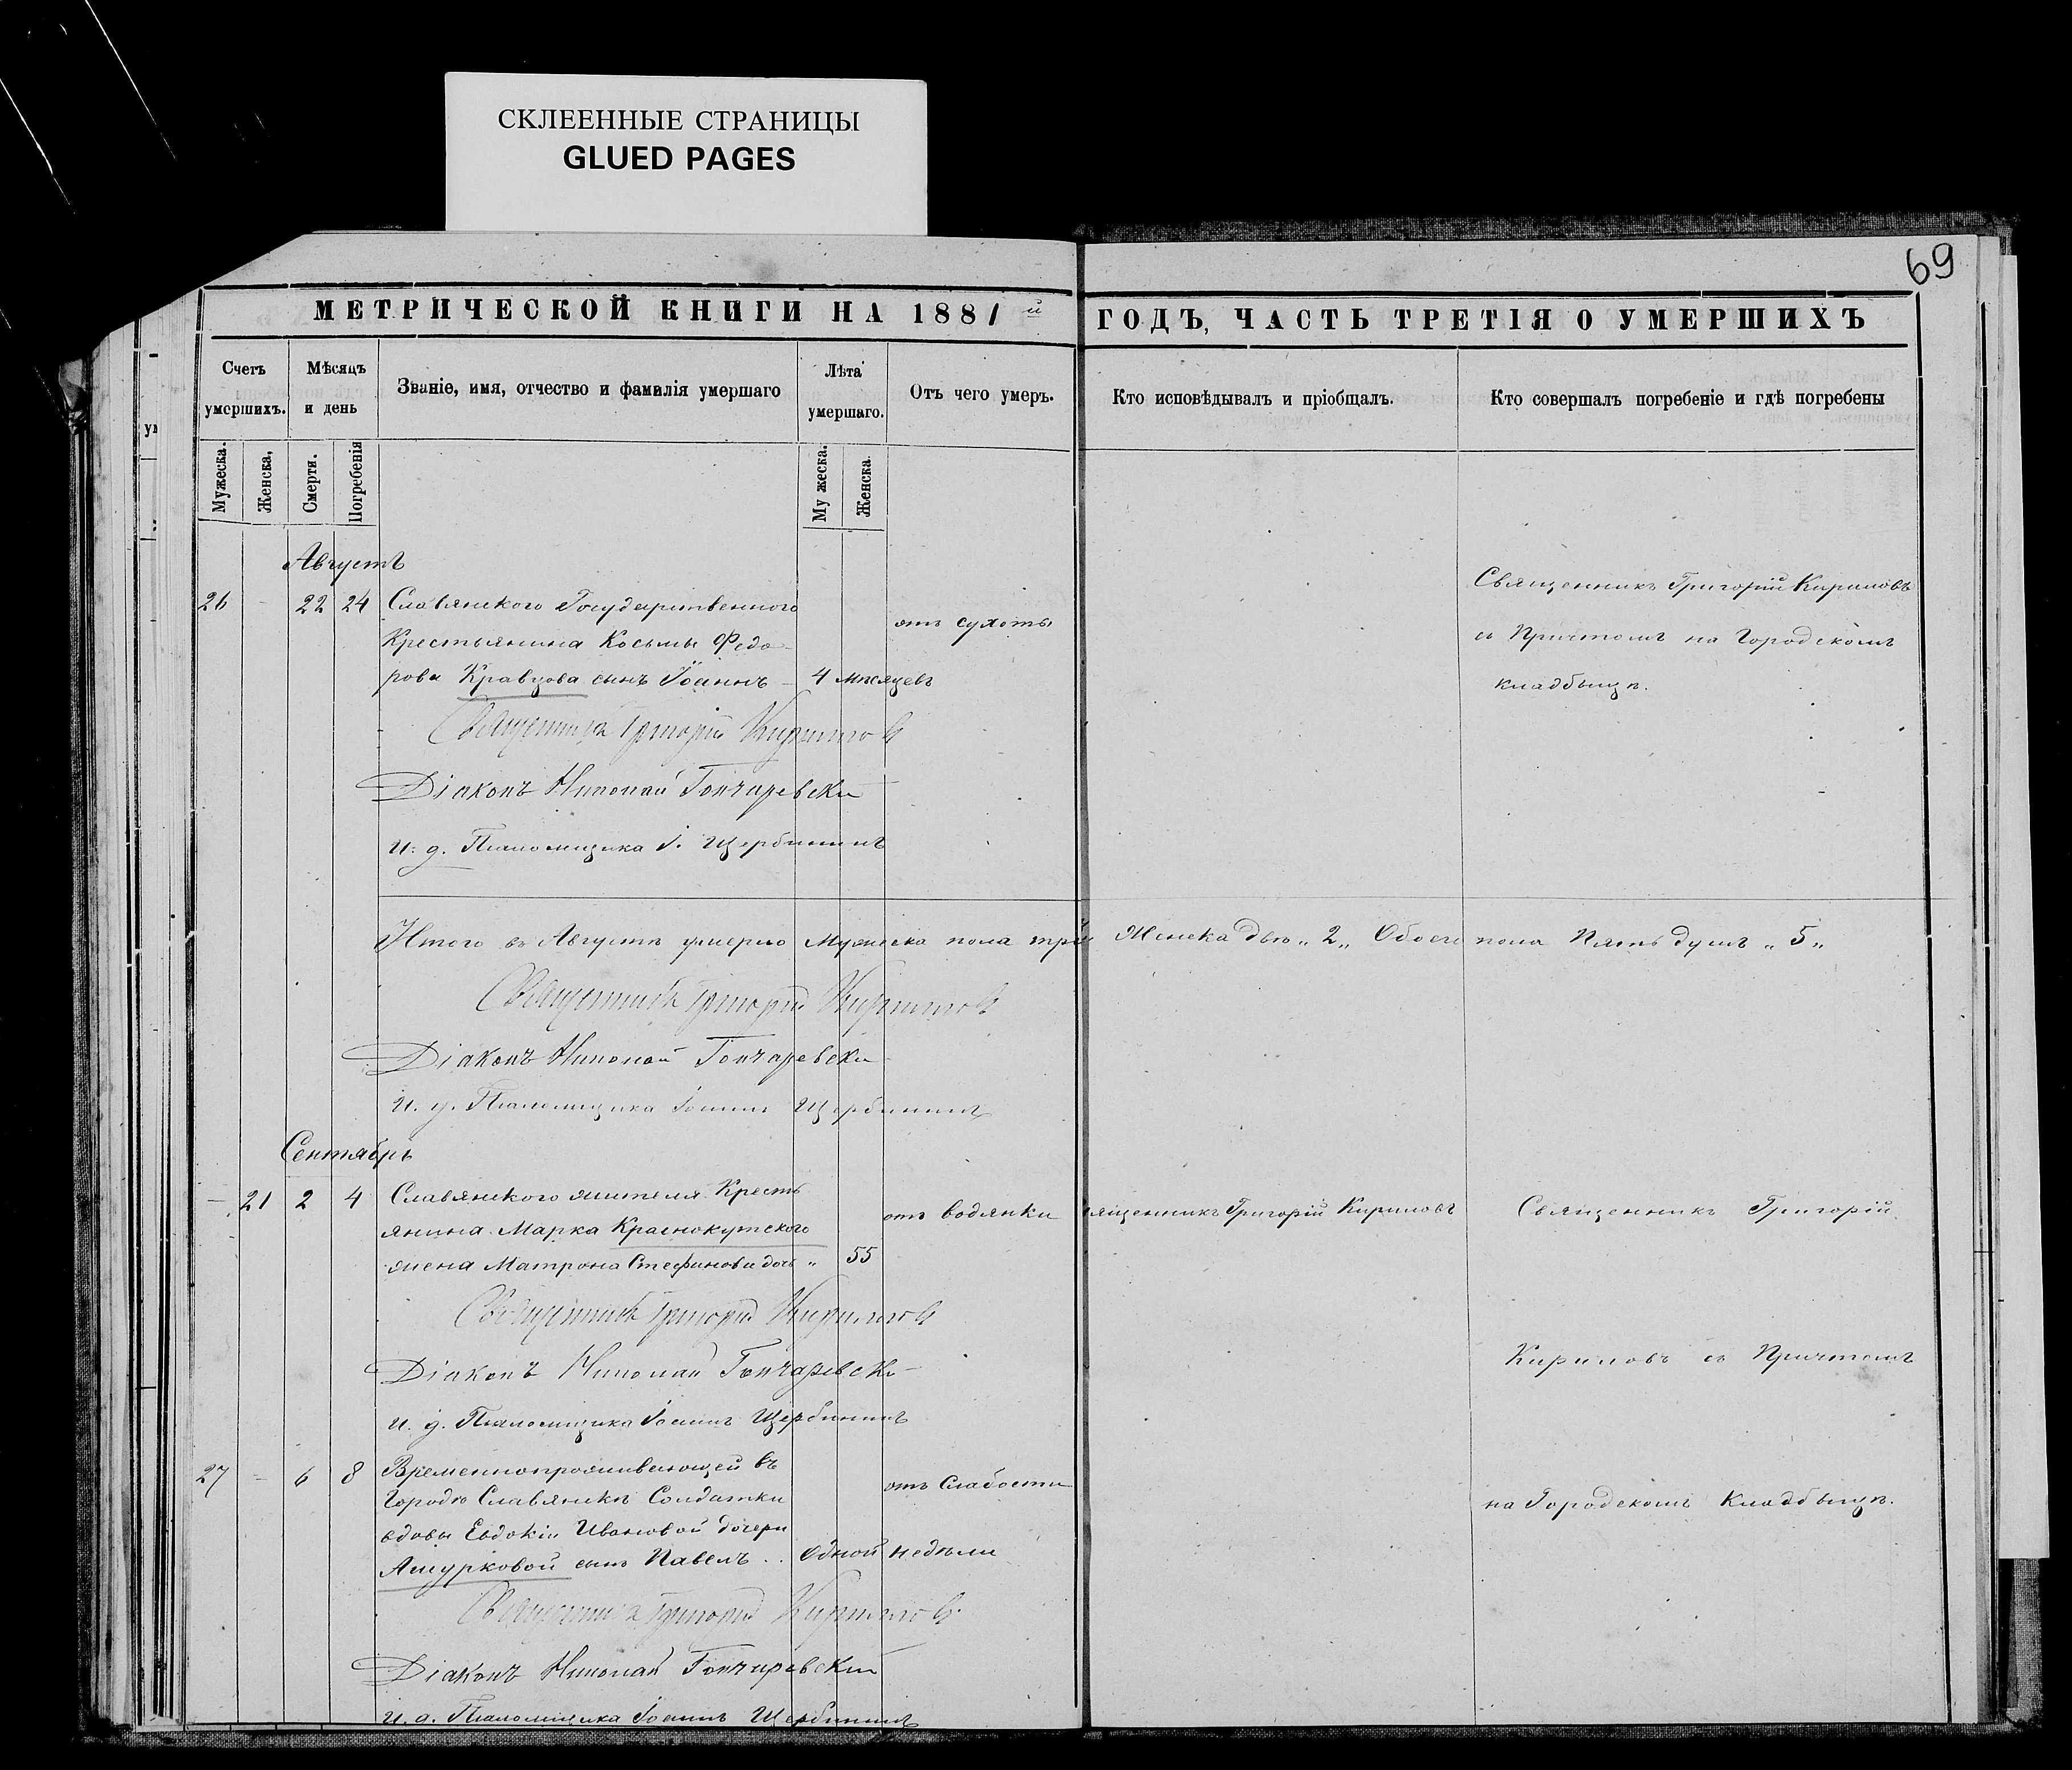 СКЛЕЕННЫЕ СТРАНИЦЫ
GLUED PAGES
69
МЕТРИЧЕСКОЙ КНИГИ НА 1881 й ГОДЪ, ЧАСТЬ ТРЕТІЯ О УМЕРШИХЪ
Счетъ умершихъ.
Мѣсяцъ и день
Званіе, имя, отчество и фамилія умершаго
Лѣта умершаго.
Отъ чего умеръ.
Кто исповѣдывалъ и пріобщалъ.
Кто совершалъ погребеніе и гдѣ погребены
Мужеска.
Женска,
Смерти.
Погребенія
Му жеска.
Женска.
Августъ
26 - 22 24 Славянского Государственного
Крестьянина Косьмы Федо-
рова Кравцова сынъ Іоаннъ - 4 мѣсяцевъ
отъ сухоты
Священникъ Григорій Кириловъ
съ Причтомъ на Городскомъ
кладбищѣ.
Священникъ Григорій Кириловъ
Діаконъ Николай Гончаревскій
И. д. Псаломщика І. Щербининъ
Итого въ Августѣ умерло Мужеска пола три Женска двѣ „2„ Обоего пола Пять душъ „5„
Священникъ Григорій Кириловъ
Діаконъ Николай Гончаревскій
И. д. Псаломщика Іоаннъ Щербининъ
Сентябрь
- 21 2 4 Славянского жителя Кресть
янина Марка Краснокутского
жена Матрона Стефанова дочь „ 55
отъ водянки
вященникъ Григорій Кириловъ
Священникъ Григорій
Священникъ Григорій Кириловъ
Діаконъ Николай Гончаревскій
И. д. Псаломщика Іоаннъ Щербининъ
Кириловъ съ Причтомъ
27 - 6 8 Временнопроживающей въ
Городѣ Славянскѣ Солдатки
вдовы Евдокіи Ивановой дочери
Ашурковой сынъ Павелъ .. Одной недѣли
отъ Слабости
на Городскомъ Кладбищѣ.
Священникъ Григорій Кириловъ
Діаконъ Николай Гончаревскій
И. д. Псаломщика Іоаннъ Щербининъ